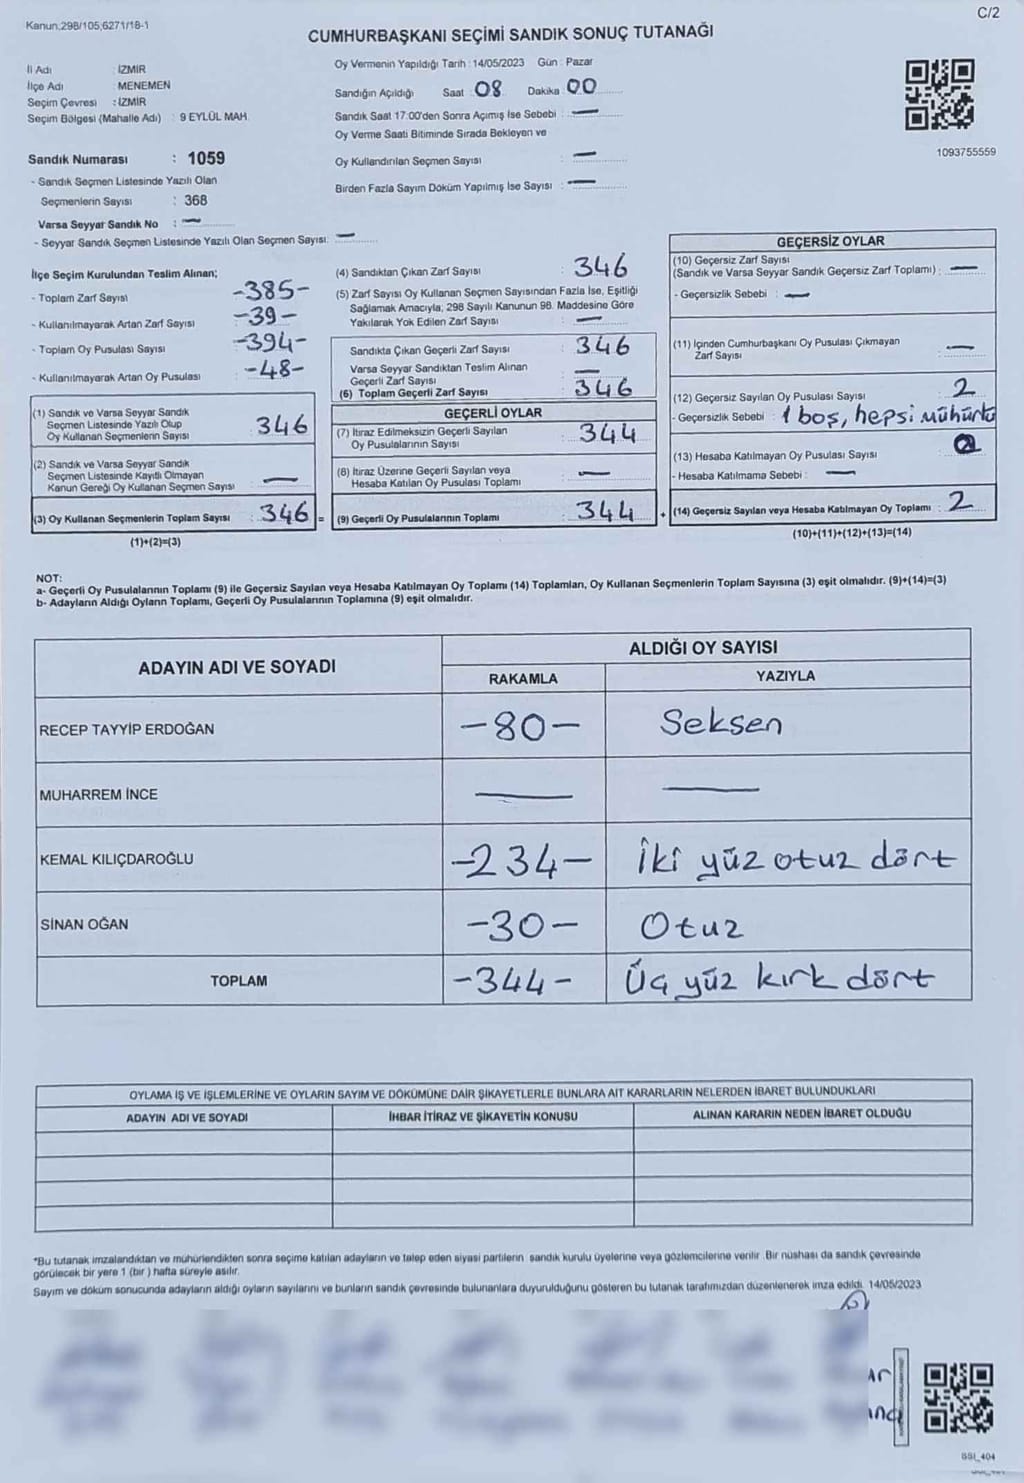 Kanun:298/105;6271/18-1
C/2
CUMHURBAŞKANI SEÇİMİ SANDIK SONUÇ TUTANAĞI
İl Adı : İZMİR
İlçe Adı : MENEMEN
Seçim Çevresi : İZMİR
Seçim Bölgesi (Mahalle Adı) : 9 EYLÜL MAH.
Sandık Numarası : 1059
- Sandık Seçmen Listesinde Yazılı Olan
Seçmenlerin Sayısı : 368
Varsa Seyyar Sandık No : —
- Seyyar Sandık Seçmen Listesinde Yazılı Olan Seçmen Sayısı: —
Oy Vermenin Yapıldığı Tarih : 14/05/2023 Gün : Pazar
Sandığın Açıldığı Saat : 08 Dakika : 00
Sandık Saat 17:00'den Sonra Açımış İse Sebebi : —
Oy Verme Saati Bitiminde Sırada Bekleyen ve
Oy Kullandırılan Seçmen Sayısı : —
Birden Fazla Sayım Döküm Yapılmış İse Sayısı : —
1093755559
İlçe Seçim Kurulundan Teslim Alınan;
- Toplam Zarf Sayısı : -385-
- Kullanılmayarak Artan Zarf Sayısı : -39-
- Toplam Oy Pusulası Sayısı : -394-
- Kullanılmayarak Artan Oy Pusulası : -48-
(1) Sandık ve Varsa Seyyar Sandık
Seçmen Listesinde Yazılı Olup
Oy Kullanan Seçmenlerin Sayısı : 346
(2) Sandık ve Varsa Seyyar Sandık
Seçmen Listesinde Kayıtlı Olmayan
Kanun Gereği Oy Kullanan Seçmen Sayısı : —
(3) Oy Kullanan Seçmenlerin Toplam Sayısı : 346 =
(1)+(2)=(3)
(4) Sandıktan Çıkan Zarf Sayısı : 346
(5) Zarf Sayısı Oy Kullanan Seçmen Sayısından Fazla İse, Eşitliği
Sağlamak Amacıyla; 298 Sayılı Kanunun 98. Maddesine Göre
Yakılarak Yok Edilen Zarf Sayısı : —
Sandıkta Çıkan Geçerli Zarf Sayısı : 346
Varsa Seyyar Sandıktan Teslim Alınan
Geçerli Zarf Sayısı : —
(6) Toplam Geçerli Zarf Sayısı : 346
GEÇERLİ OYLAR
(7) İtiraz Edilmeksizin Geçerli Sayılan
Oy Pusulalarının Sayısı : 344
(8) İtiraz Üzerine Geçerli Sayılan veya
Hesaba Katılan Oy Pusulası Toplamı : —
(9) Geçerli Oy Pusulalarının Toplamı : 344 +
GEÇERSİZ OYLAR
(10) Geçersiz Zarf Sayısı
(Sandık ve Varsa Seyyar Sandık Geçersiz Zarf Toplamı) : —
- Geçersizlik Sebebi : —
(11) İçinden Cumhurbaşkanı Oy Pusulası Çıkmayan
Zarf Sayısı : —
(12) Geçersiz Sayılan Oy Pusulası Sayısı : 2
- Geçersizlik Sebebi : 1 boş, hepsi mühürlü
(13) Hesaba Katılmayan Oy Pusulası Sayısı :
- Hesaba Katılmama Sebebi : —
(14) Geçersiz Sayılan veya Hesaba Katılmayan Oy Toplamı : 2
(10)+(11)+(12)+(13)=(14)
NOT:
a- Geçerli Oy Pusulalarının Toplamı (9) ile Geçersiz Sayılan veya Hesaba Katılmayan Oy Toplamı (14) Toplamları, Oy Kullanan Seçmenlerin Toplam Sayısına (3) eşit olmalıdır. (9)+(14)=(3)
b- Adayların Aldığı Oyların Toplamı, Geçerli Oy Pusulalarının Toplamına (9) eşit olmalıdır.
ADAYIN ADI VE SOYADI
ALDIĞI OY SAYISI
RAKAMLA YAZIYLA
RECEP TAYYİP ERDOĞAN -80- Seksen
MUHARREM İNCE — —
KEMAL KILIÇDAROĞLU -234- İki yüz otuz dört
SİNAN OĞAN -30- Otuz
TOPLAM -344- Üç yüz kırk dört
OYLAMA İŞ VE İŞLEMLERİNE VE OYLARIN SAYIM VE DÖKÜMÜNE DAİR ŞİKAYETLERLE BUNLARA AİT KARARLARIN NELERDEN İBARET BULUNDUKLARI
ADAYIN ADI VE SOYADI İHBAR İTİRAZ VE ŞİKAYETİN KONUSU ALINAN KARARIN NEDEN İBARET OLDUĞU
*Bu tutanak imzalandıktan ve mühürlendikten sonra seçime katılan adayların ve talep eden siyasi partilerin sandık kurulu üyelerine veya gözlemcilerine verilir. Bir nüshası da sandık çevresinde
görülecek bir yere 1 (bir) hafta süreyle asılır.
Sayım ve döküm sonucunda adayların aldığı oyların sayılarını ve bunların sandık çevresinde bulunanlara duyurulduğunu gösteren bu tutanak tarafımızdan düzenlenerek imza edildi. 14/05/2023
SSI_404